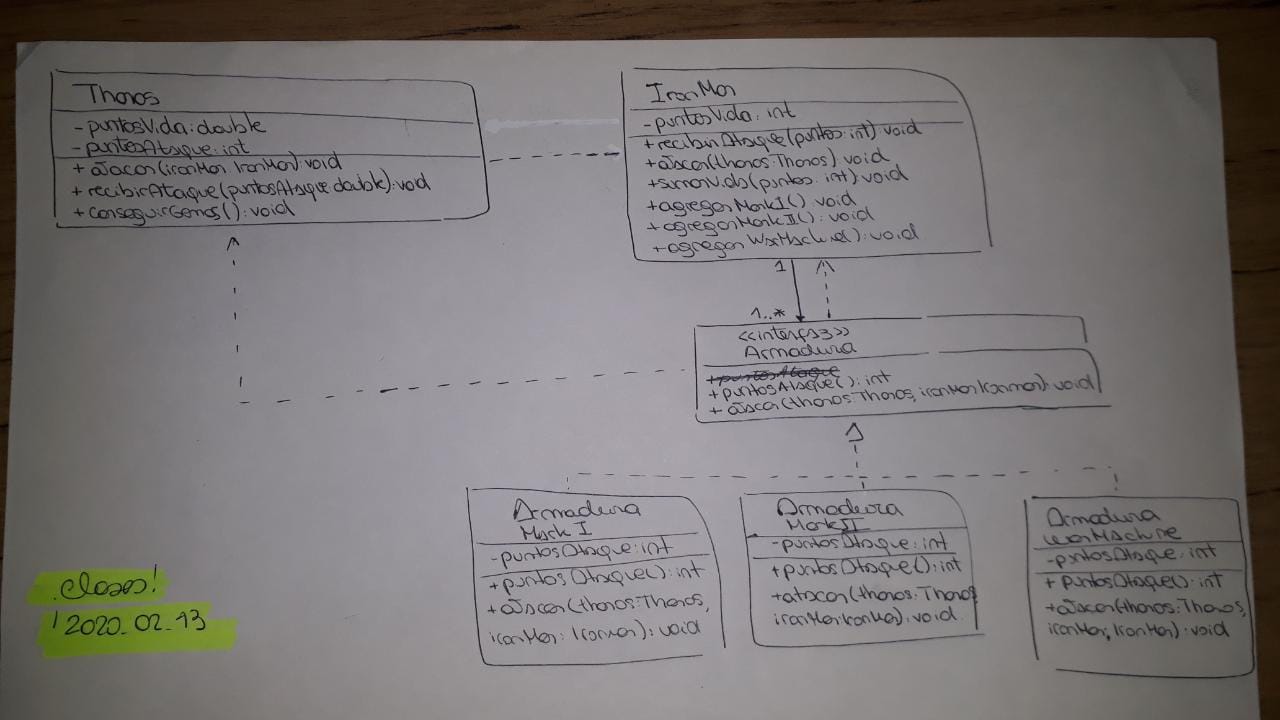 Thanos
- puntosVida: double
- puntosAtaque: int
+ atacar(ironMan: IronMan): void
+ recibirAtaque(puntosAtaque: double): void
+ conseguirGemas(): void
IronMan
- puntosVida: int
+ recibirAtaque(puntos: int): void
+ atacar(thanos: Thanos): void
+ sumarVida(puntos: int): void
+ agregarMarkI(): void
+ agregarMarkII(): void
+ agregarWarMachine(): void
1
1..*
<<interfaz>>
Armadura
+ puntosAtaque
+ puntosAtaque(): int
+ atacar(thanos: Thanos, ironMan: Ironman): void
Armadura
Mark I
- puntosAtaque: int
+ puntosAtaque(): int
+ atacar(thanos: Thanos,
ironMan: Ironman): void
Armadura
Mark II
- puntosAtaque: int
+ puntosAtaque(): int
+ atacar(thanos: Thanos,
ironMan: IronMan): void
Armadura
WarMachine
- puntosAtaque: int
+ puntosAtaque(): int
+ atacar(thanos: Thanos,
ironMan: IronMan): void
Clases!
2020-02-13